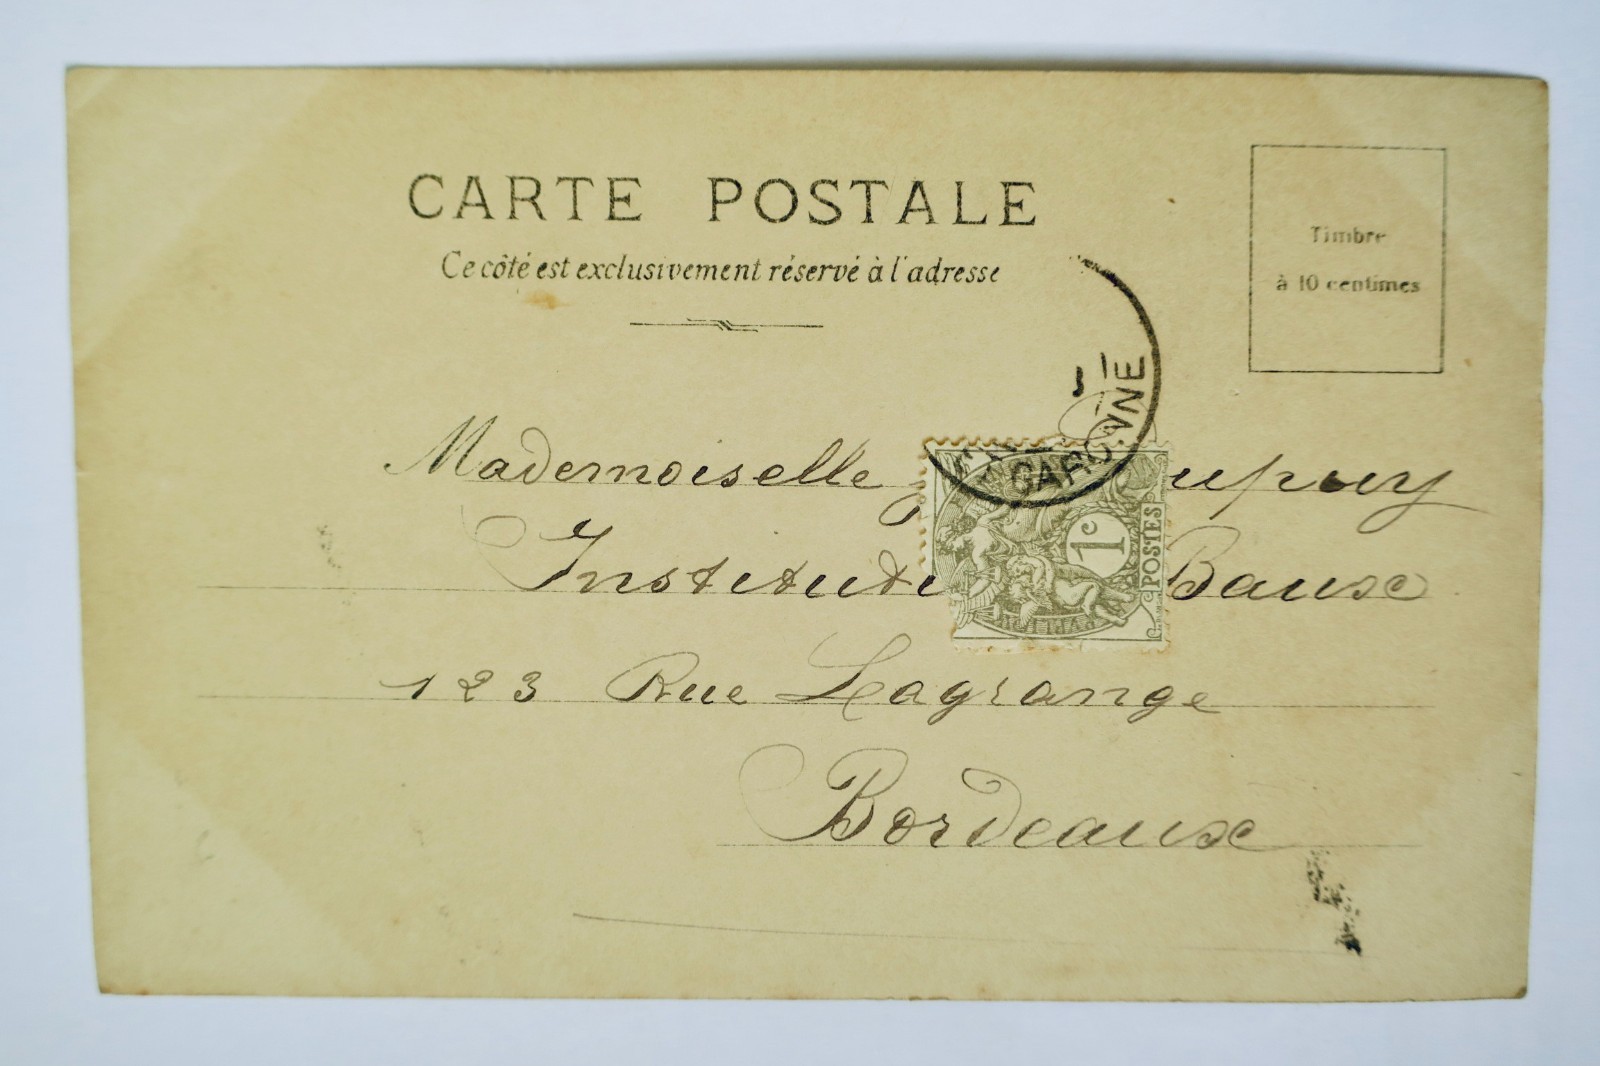 CARTE POSTALE
Ce côté est exclusivement réservé à l'adresse
Timbre
à 10 centimes
GARONNE
Mademoiselle upuy
Institut Baux
1c
POSTES
123 Rue Lagrange
Bordeaux